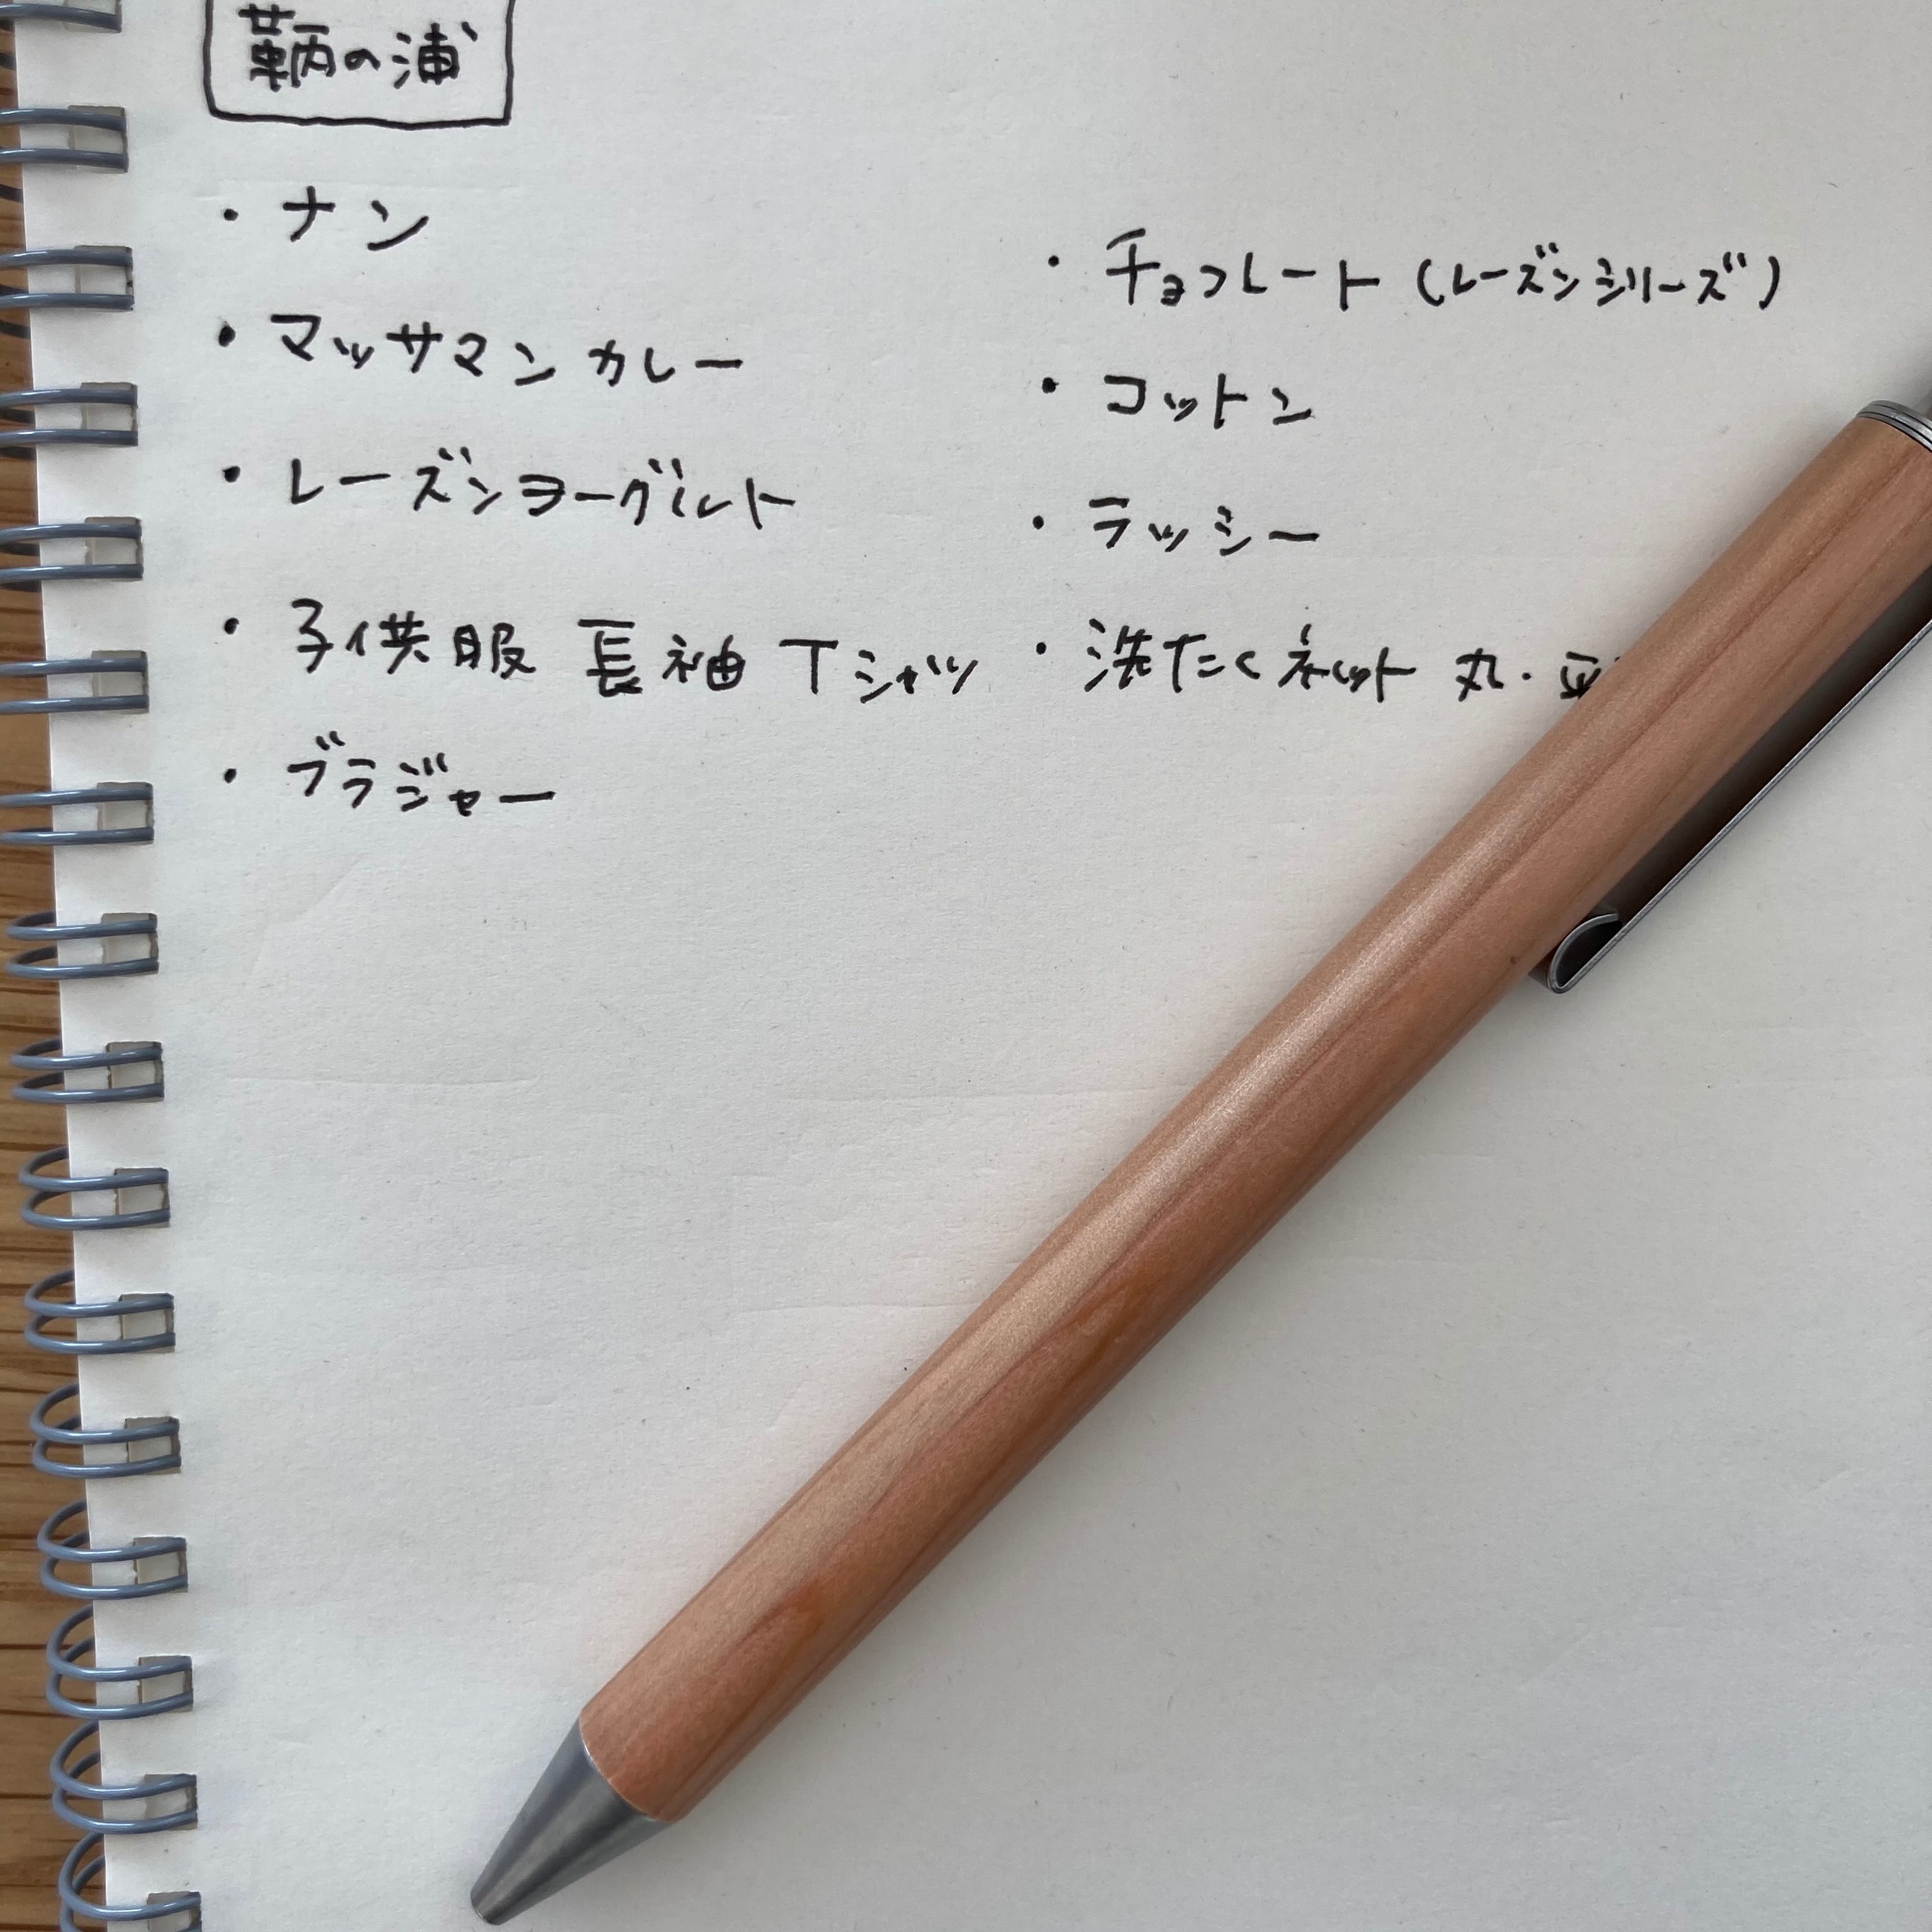 鞆の浦
・ナン
・マッサマンカレー
・レーズンヨーグルト
・子供服 長袖 Tシャツ
・ブラジャー
・チョコレート(レーズンシリーズ)
・コットン
・ラッシー
・洗たくネット 丸・